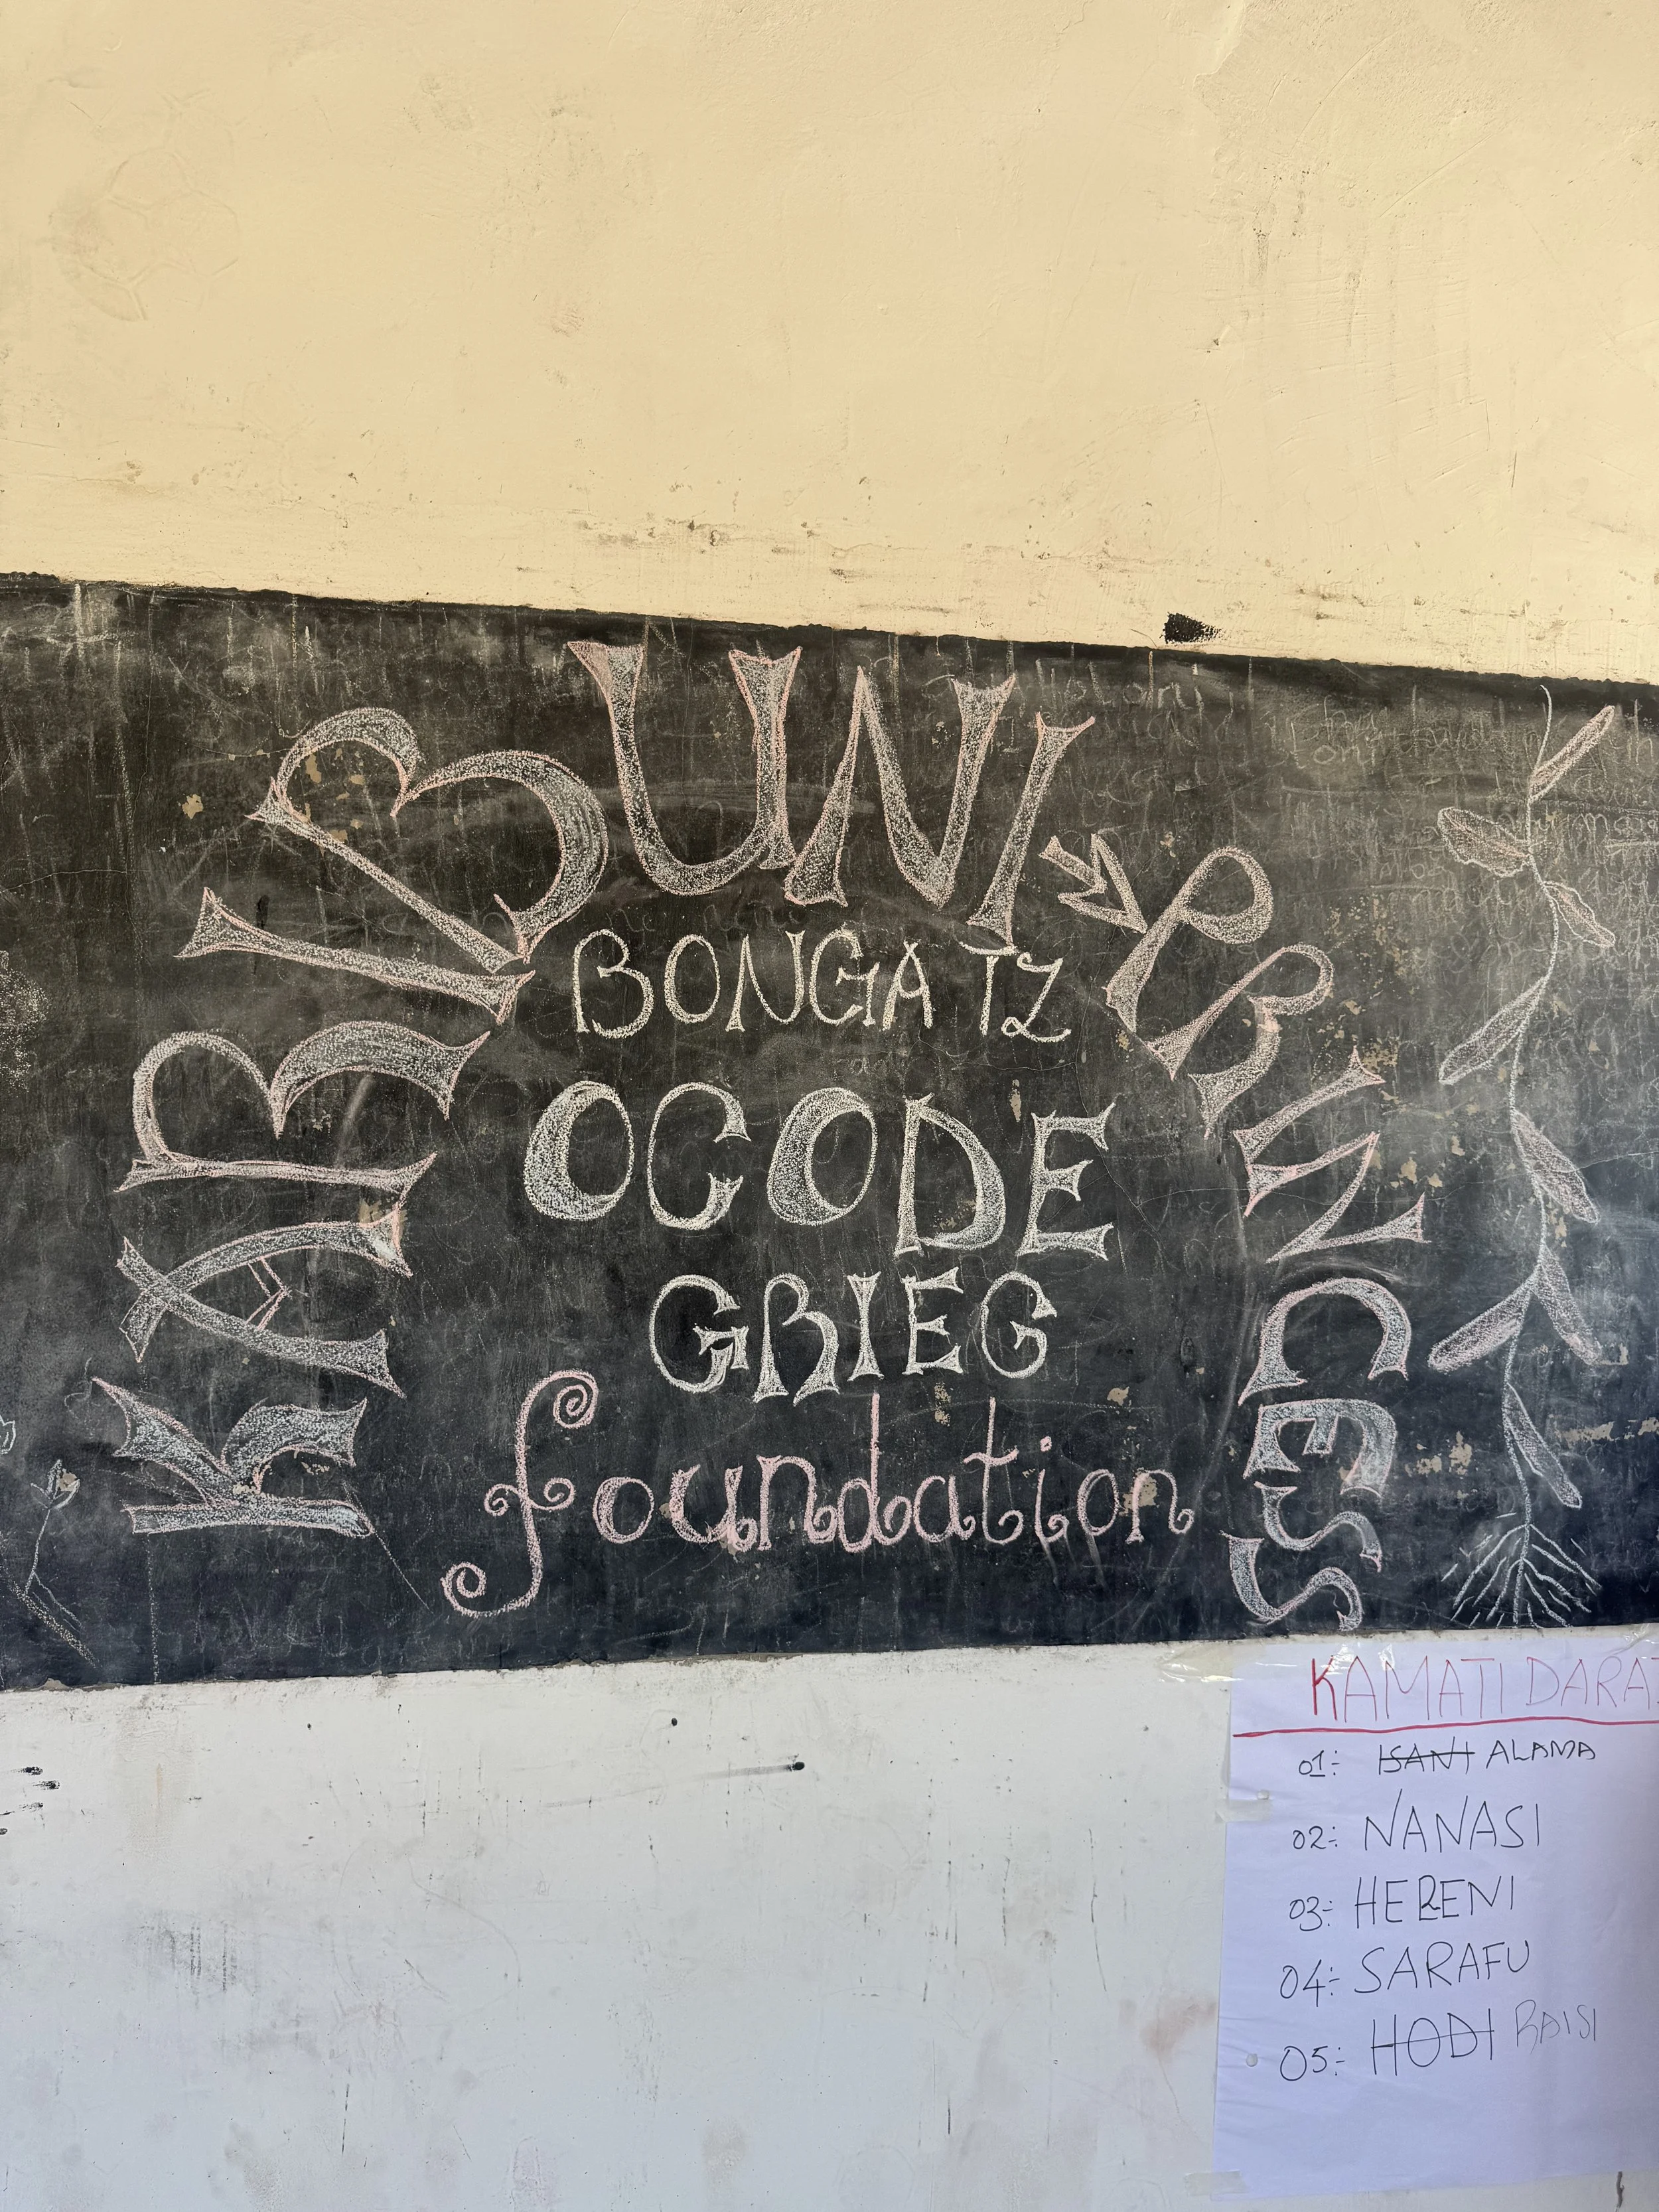 KARIBUNI PRINCESS
BONGA TZ
OCODE
GRIEG
foundation
KAMATI DARA
01:- ISANI ALAMA
02:- NANASI
03:- HERENI
04:- SARAFU
05:- HODI RAISI